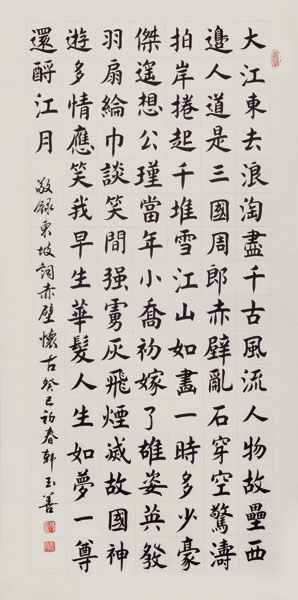 大江東去浪淘盡千古風流人物故壘西
邊人道是三國周郎赤壁亂石穿空驚濤
拍岸捲起千堆雪江山如畫一時多少豪
傑遙想公瑾當年小喬初嫁了雄姿英發
羽扇綸巾談笑間强虜灰飛煙滅故國神
遊多情應笑我早生華髮人生如夢一尊
還酹江月
敬錄東坡詞赤壁懷古癸巳初春韓玉善